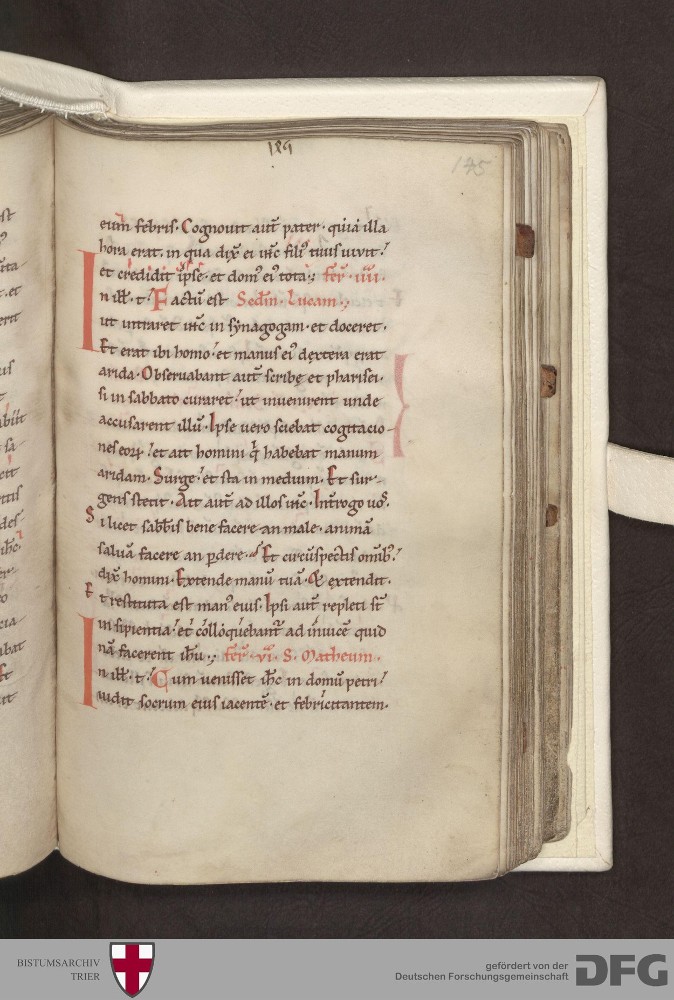 189
145
eum febris. Cognouit aut̄ pater. quia illa
hora erat. in qua dix̄ ei ihc̄ filiꝰ tuus uiuit.
et credidit ipse. et domꝰ eiꝰ tota. fer̄. iiii.
In ill̄. t. Factū est Scd̄m. Lucam.
ut intraret ihc̄ in synagogam. et doceret.
Et erat ibi homo. et manus eiꝰ dextera erat
arida. Obseruabant aut̄ scribę et pharisei.
si in sabbato curaret. ut inuenirent unde
accusarent illū. Ipse uero sciebat cogitacio-
nes eoꝝ. et ait homini q̇ habebat manum
aridam. Surge. et sta in medium. Et sur-
gens stetit. Ait aut̄ ad illos ihc̄. Int̄rogo uos.
Si licet sabb̄is bene facere an male. animā
saluā facere an ꝑdere. Et circūspectis omībꝰ.
dix̄ homini. Extende manū tuā. Et extendit.
Et restituta est manꝰ eius. Ipsi aut̄ repleti st̄
insipientia. et colloquebant᷑ ad inuicē quid
nā facerent ih̄u. fer̄. vi. S. Matheum.
In ill̄. t. Cum uenisset ihc̄ in domū petri.
uidit socrum eius iacentē. et febricitantem.
BISTUMSARCHIV
TRIER
gefördert von der
Deutschen Forschungsgemeinschaft
DFG